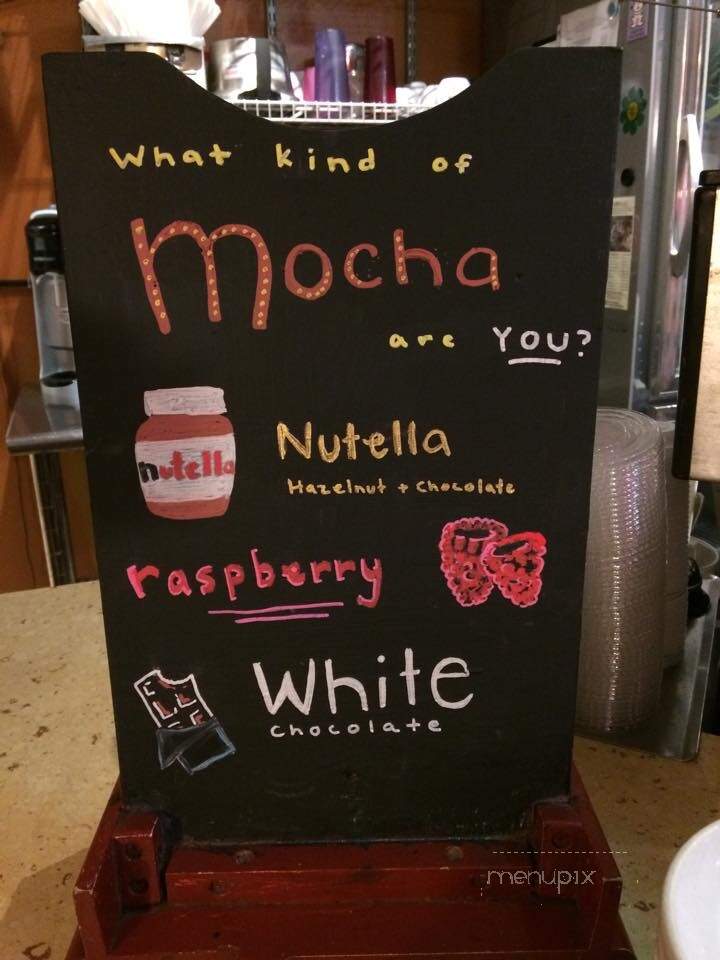 What kind of
mocha
are YOU?
nutella
Nutella
Hazelnut + Chocolate
raspberry
White
chocolate
menupix